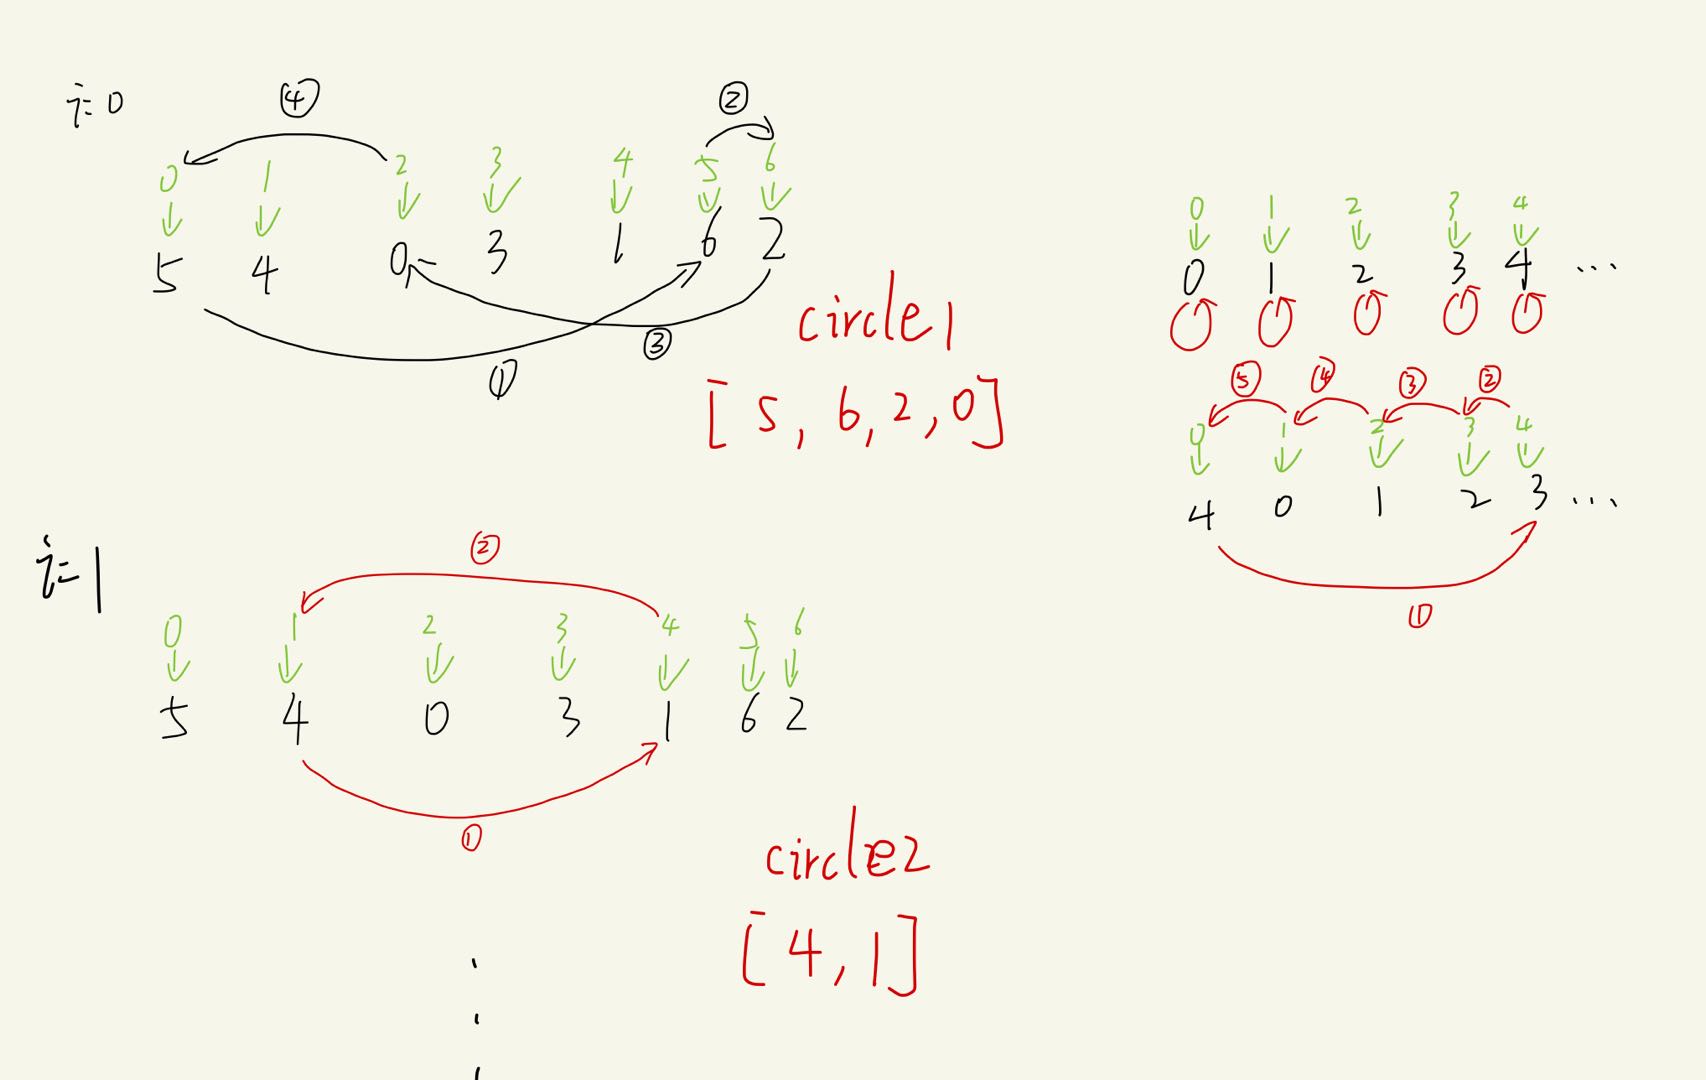 i=0
④ ②
0 1 2 3 4 5 6
5 4 0 3 1 6 2
③
①
circle1
[5, 6, 2, 0]
i=1
②
0 1 2 3 4 5 6
5 4 0 3 1 6 2
①
circle2
[4, 1]
0 1 2 3 4
0 1 2 3 4 ...
⑤ ④ ③ ②
0 1 2 3 4
4 0 1 2 3 ...
①